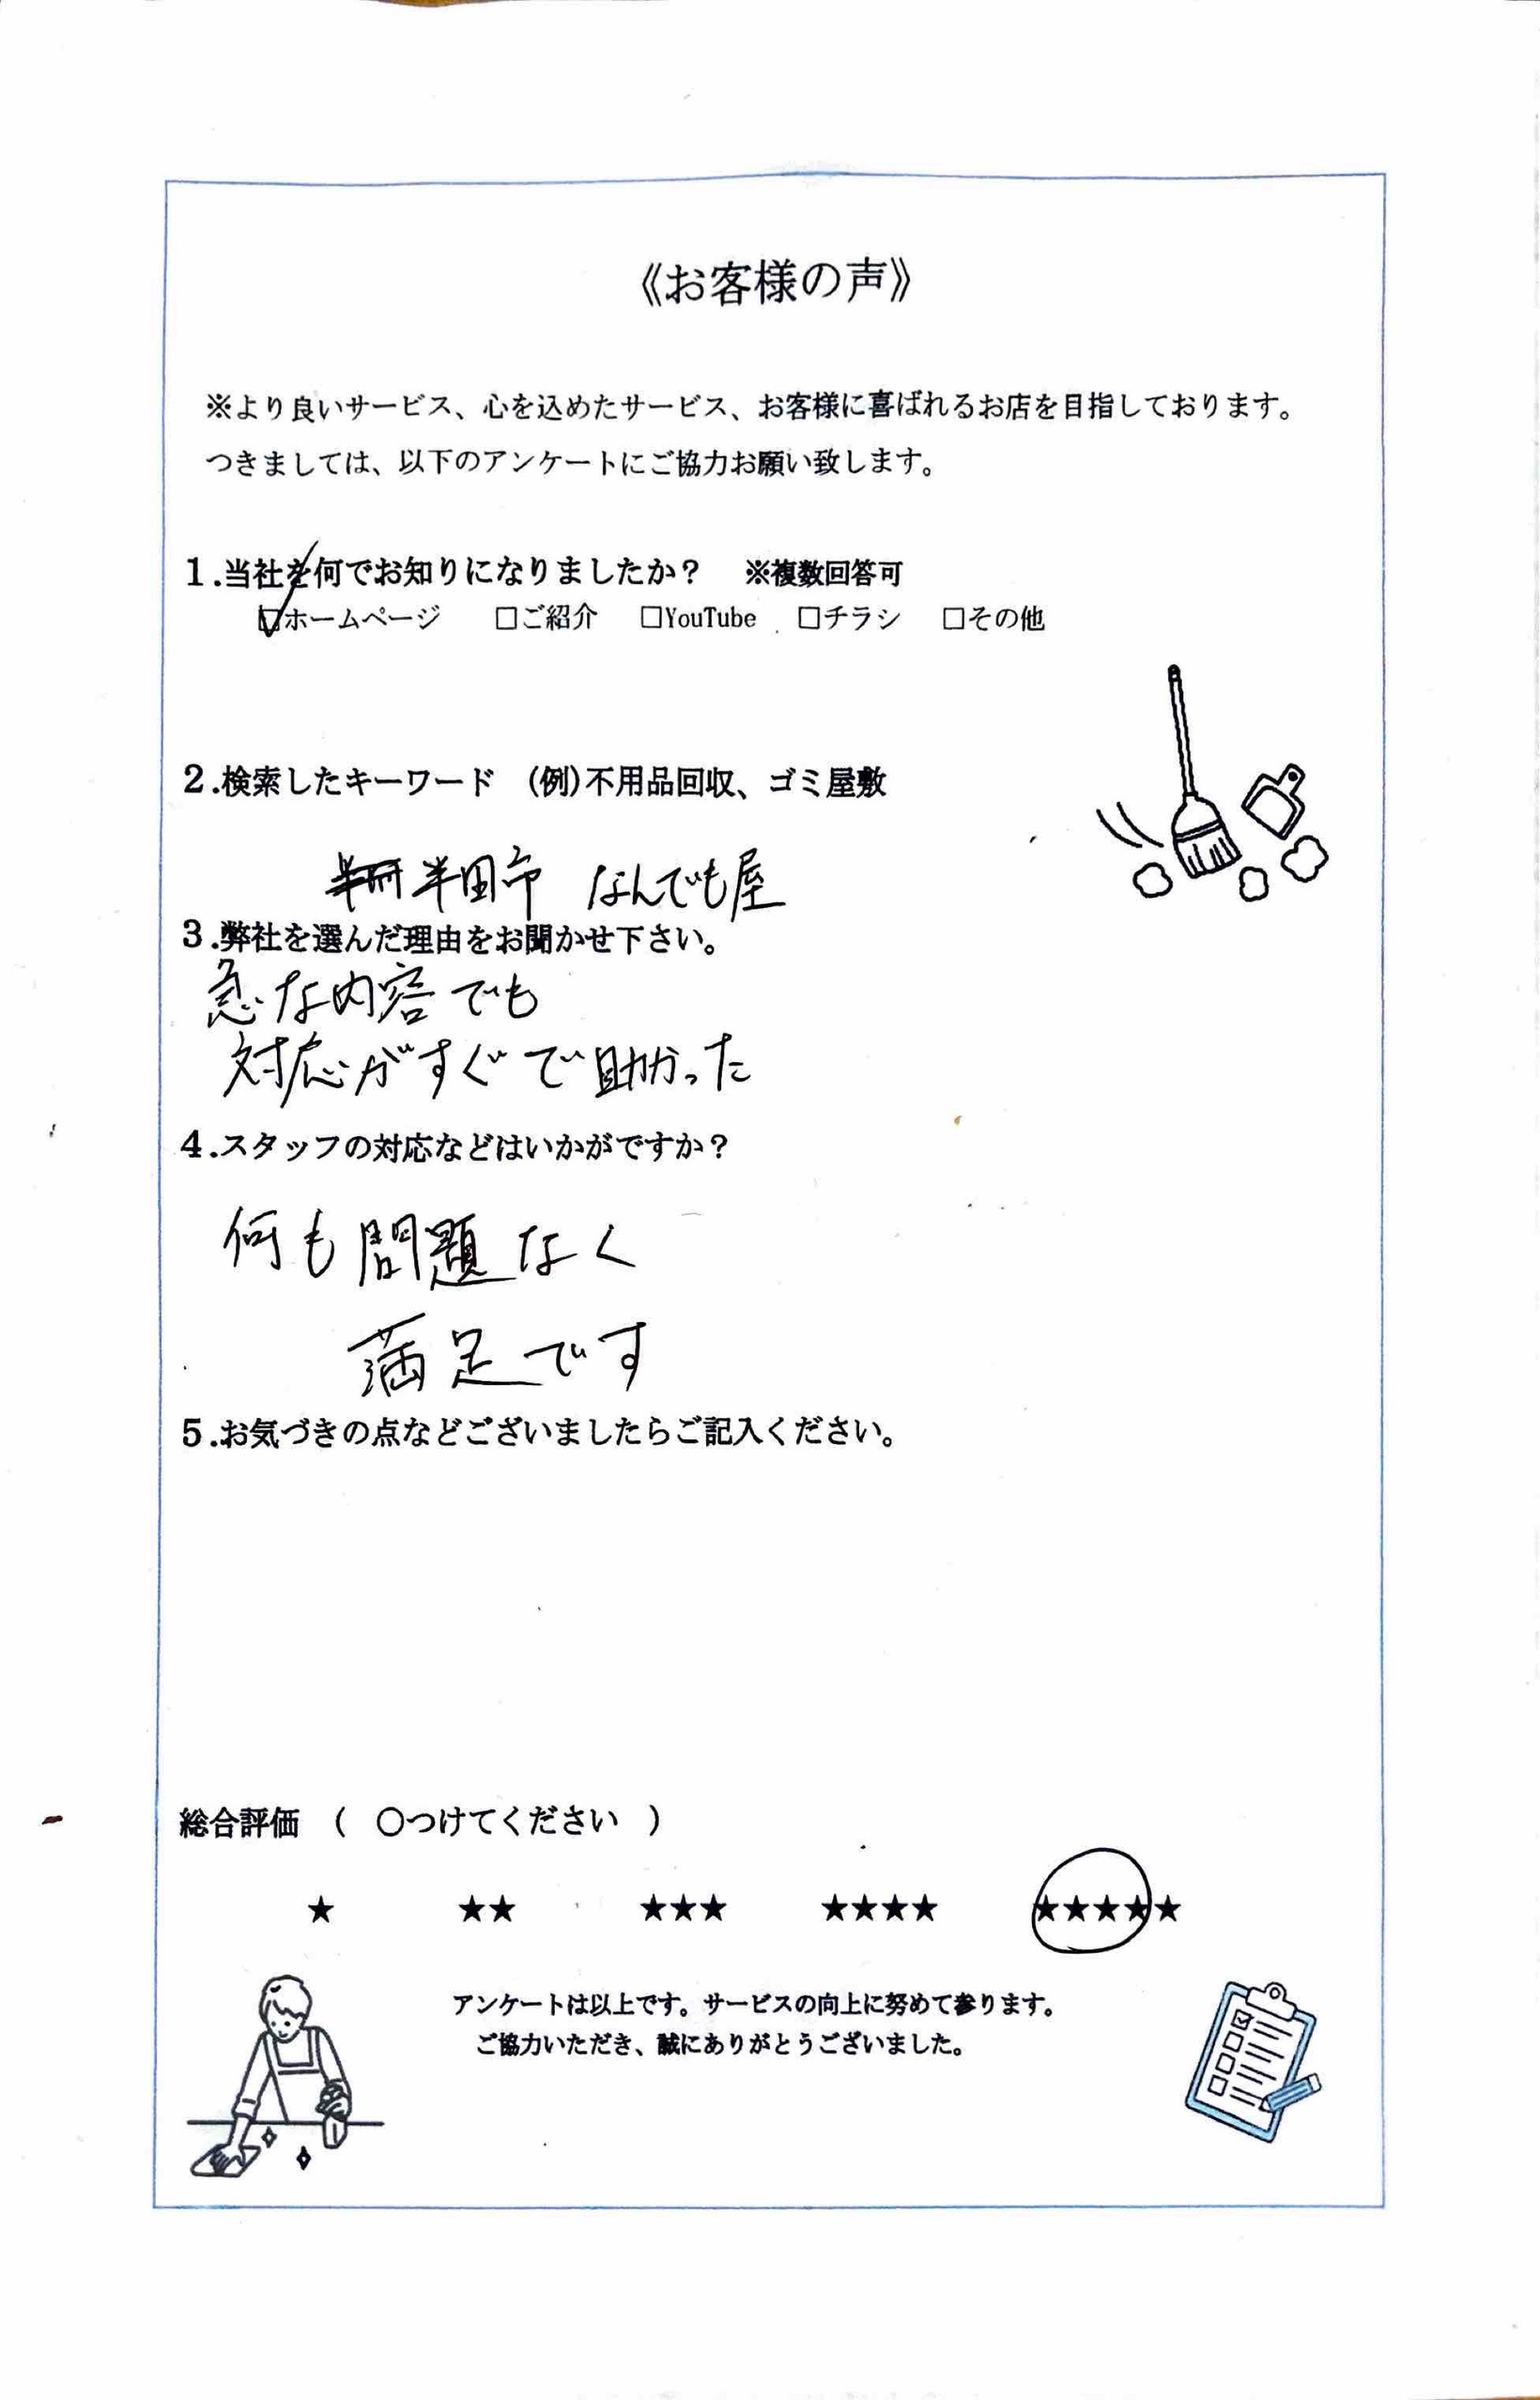 《お客様の声》
※より良いサービス、心を込めたサービス、お客様に喜ばれるお店を目指しております。
つきましては、以下のアンケートにご協力お願い致します。
1.当社を何でお知りになりましたか？　※複数回答可
☑ホームページ　□ご紹介　□YouTube　□チラシ　□その他
2.検索したキーワード　(例)不用品回収、ゴミ屋敷
半田市　なんでも屋
3.弊社を選んだ理由をお聞かせ下さい。
急な内容でも
対応がすぐで助かった
4.スタッフの対応などはいかがですか？
何も問題なく
満足です
5.お気づきの点などございましたらご記入ください。
総合評価　(　○つけてください　)
★　★★　★★★　★★★★　★★★★★
アンケートは以上です。サービスの向上に努めて参ります。
ご協力いただき、誠にありがとうございました。